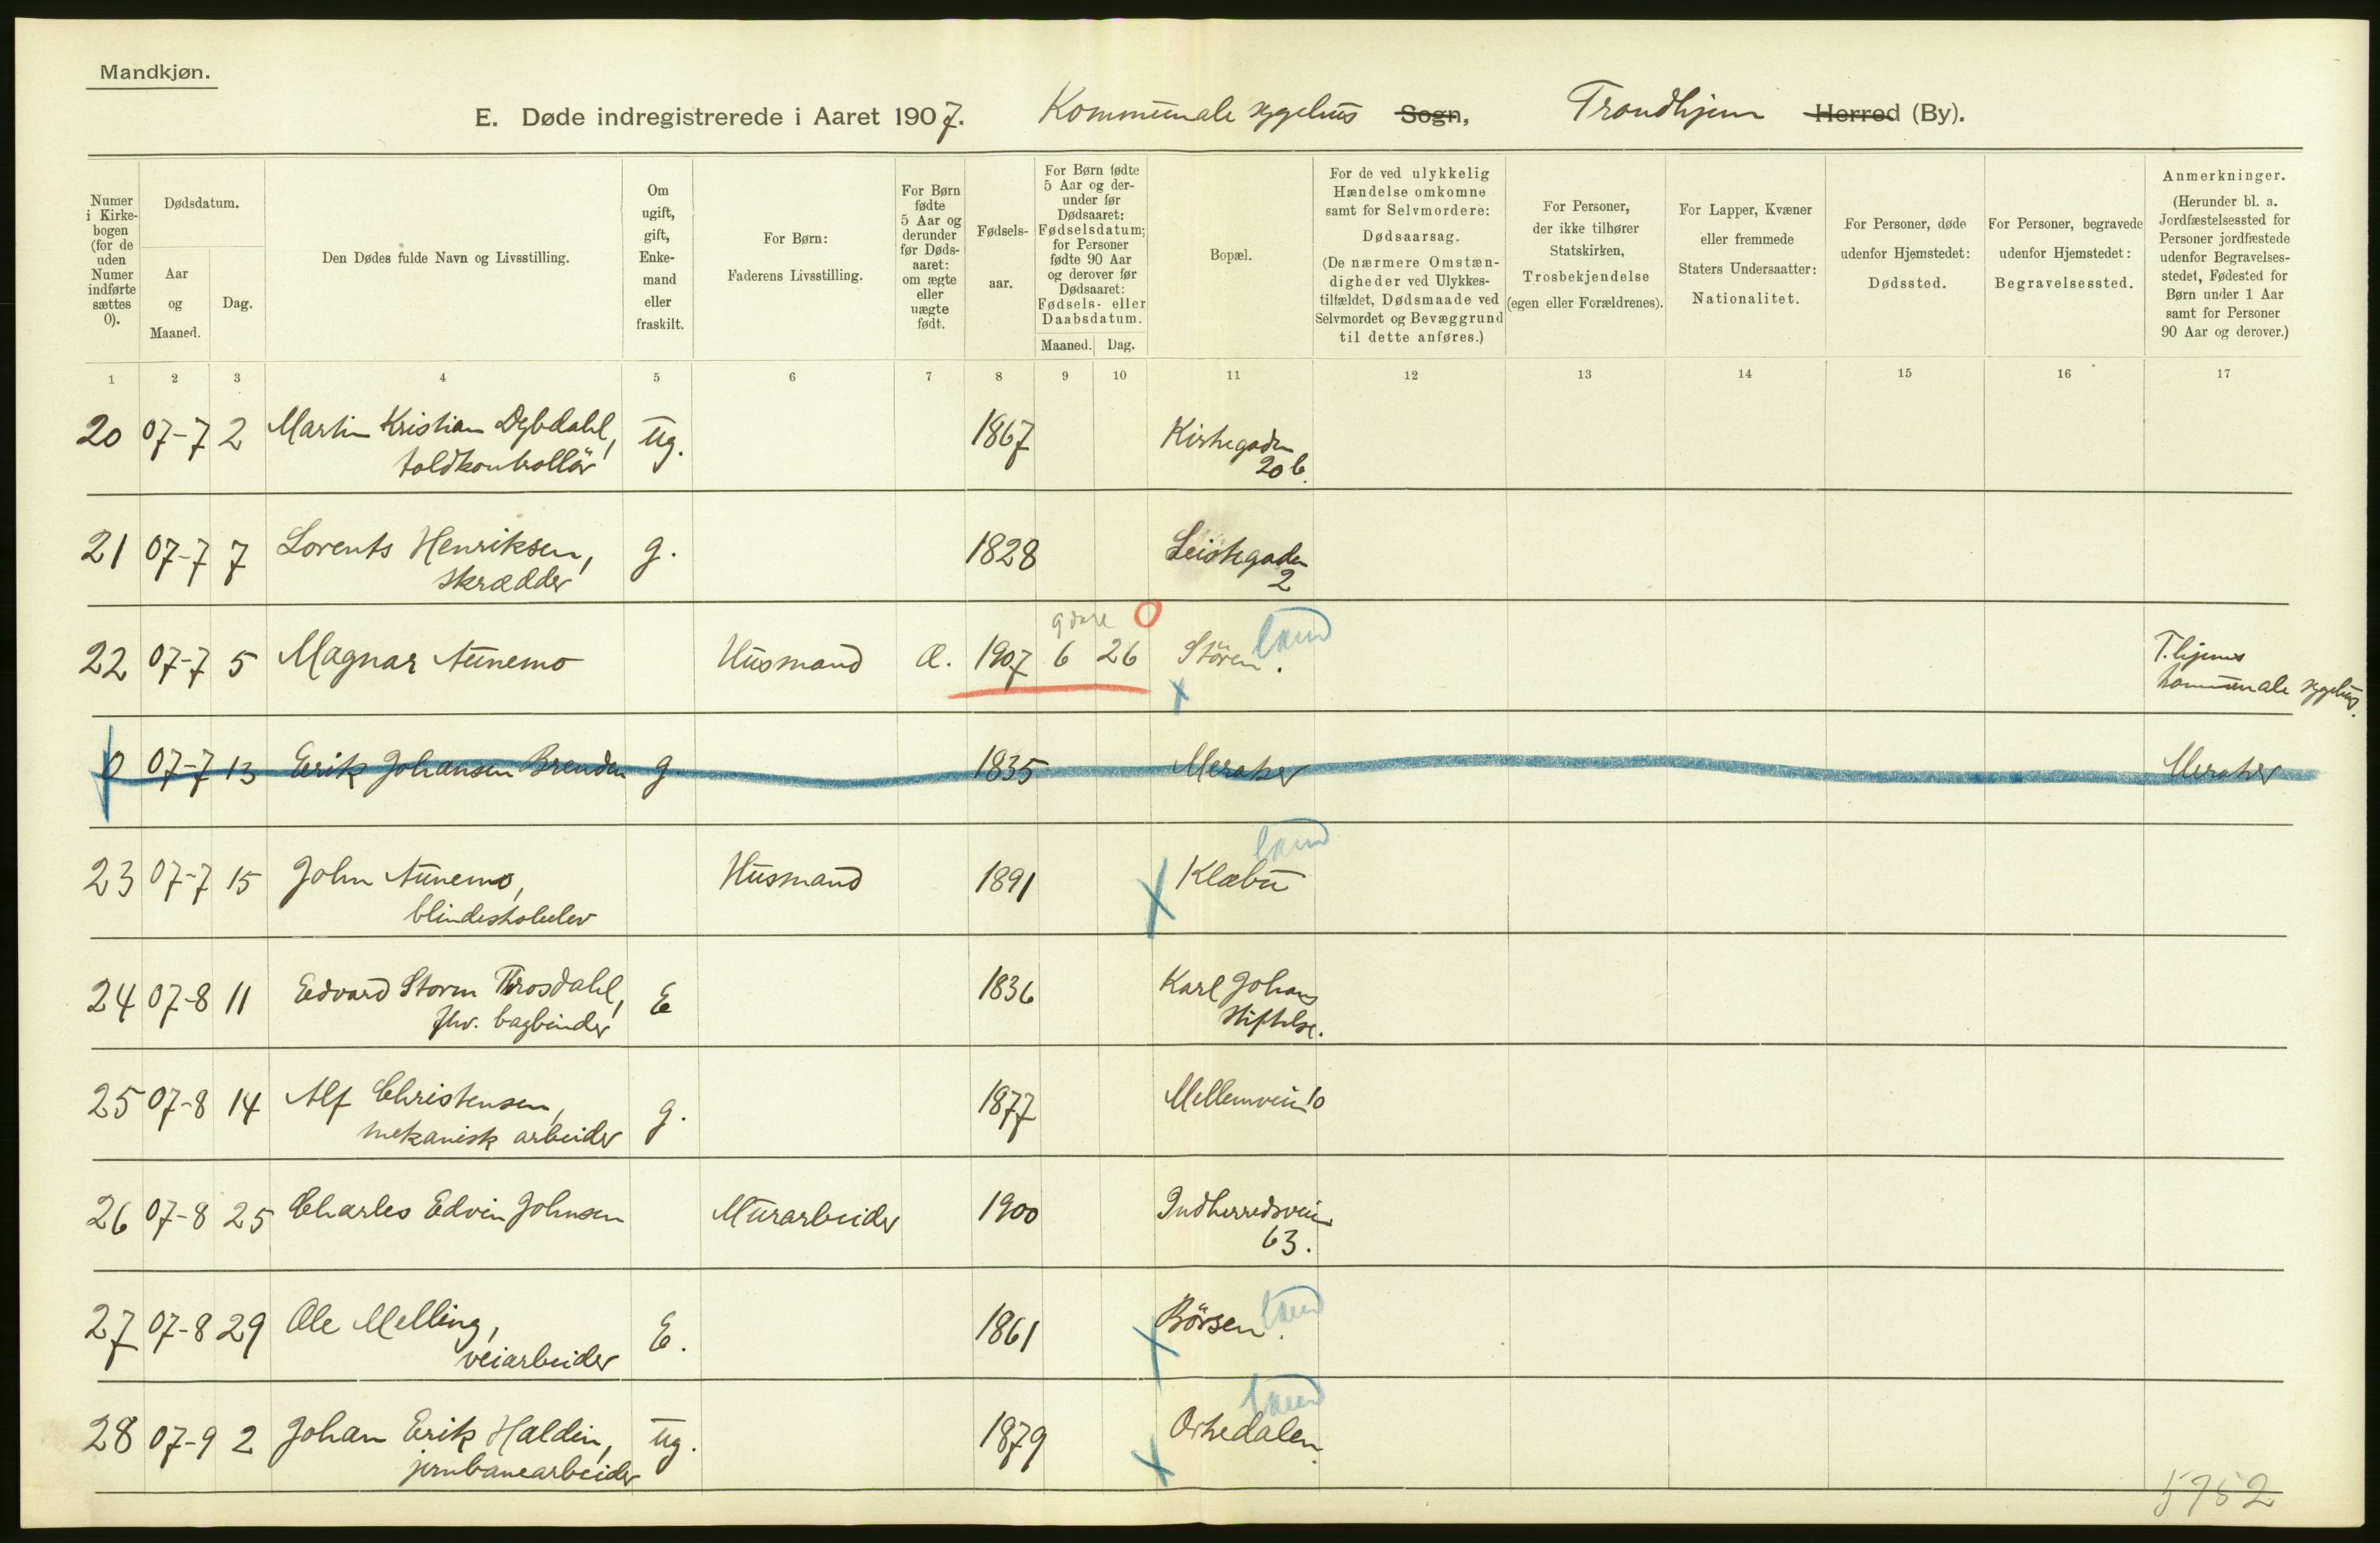 Mandkjøn.
E. Døde indregistrerede i Aaret 1907. Kommunale sygehus Sogn, Trondhjem Herred (By).
Numer i Kirke- bogen (for de uden Numer indførte sættes 0).
Dødsdatum.
Aar og Maaned.
Dag.
Den Dødes fulde Navn og Livsstilling.
Om ugift, gift, Enke- mand eller fraskilt.
For Børn: Faderens Livsstilling.
For Børn fødte 5 Aar og derunder før Døds- aaret: om ægte eller uægte født.
Fødsels- aar.
For Børn fødte 5 Aar og der- under før Dødsaaret: Fødselsdatum; for Personer fødte 90 Aar og derover før Dødsaaret: Fødsels- eller Daabsdatum.
Maaned. Dag.
Bopæl.
For de ved ulykkelig Hændelse omkomne samt for Selvmordere: Dødsaarsag. (De nærmere Omstæn- digheder ved Ulykkes- tilfældet, Dødsmaade ved Selvmordet og Bevæggrund til dette anføres.)
For Personer, der ikke tilhører Statskirken, Trosbekjendelse (egen eller Forældrenes).
For Lapper, Kvæner eller fremmede Staters Undersaatter: Nationalitet.
For Personer, døde udenfor Hjemstedet: Dødssted.
For Personer, begravede udenfor Hjemstedet: Begravelsessted.
Anmerkninger. (Herunder bl. a. Jordfæstelsessted for Personer jordfæstede udenfor Begravelses- stedet, Fødested for Børn under 1 Aar samt for Personer 90 Aar og derover.)
1 2 3 4 5 6 7 8 9 10 11 12 13 14 15 16 17
20 07-7 2 Martin Kristian Dybdahl, ug. 1867 Kirkegaden
toldkontrollör 20 b.
21 07-7 7 Lorents Henriksen, g. 1828 Leistegaden
skrædder 2
0 land
22 07-7 5 Magnar Aunemo Husmand Æ. 1907 6 26 Stören. T.hjems
x kommunale sygehus.
0 07-7 13 Erik Johansen Brenden g. 1835 Meraker Meraker
land
23 07-7 15 John Aunemo, Husmand 1891 x Klæbu
blindeskoleelev
24 07-8 11 Edvard Storm Throsdahl, E 1836 Karl Johans
fhv. bagbinder Stiftelse.
25 07-8 14 Alf Christensen, g. 1877 Mellemveien 10
mekanisk arbeider
26 07-8 25 Charles Edvin Johnsen Murarbeider 1900 Indherredsveien
63.
27 07-8 29 Ole Melling, E. 1861 x Börsen. land
veiarbeider
land
28 07-9 2 Johan Erik Haldin, ug. 1879 x Orkedalen.
jernbanearbeider
5952